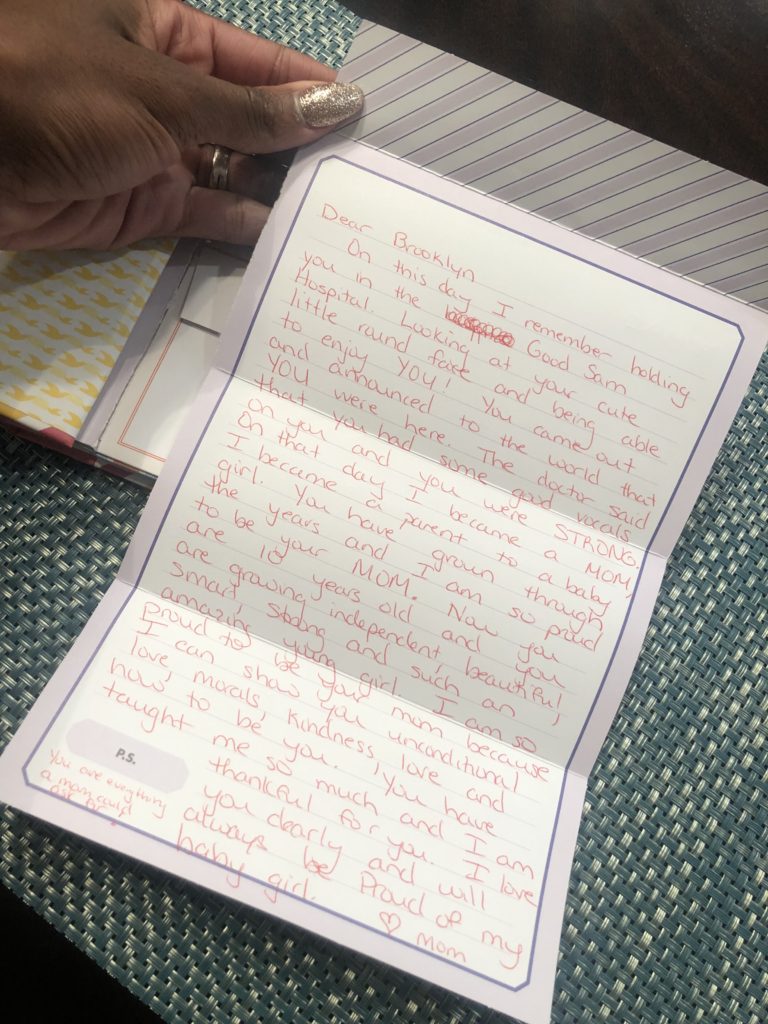 Dear Brooklyn
On this day I remember holding
you in the Good Sam
Hospital. Looking at your cute
little round face and being able
to enjoy YOU! You came out
and announced to the world that
YOU were here. The doctor said
that you had some good vocals
on you and you were STRONG.
On that day I became a MOM,
I became a parent to a baby
girl. You have grown through
the years and I am so proud
to be your MOM. Now you
are 10 years old and you
are growing independent, beautiful,
smart, strong and such an
amazing young girl. I am so
proud to be your mom because
I can show you unconditional
love, morals, kindness, love and
how to be you. You have
taught me so much and I am
thankful for you. I love
you dearly and will
always be Proud of my
baby girl.
♡ Mom
P.S.
You are everything
a mom could